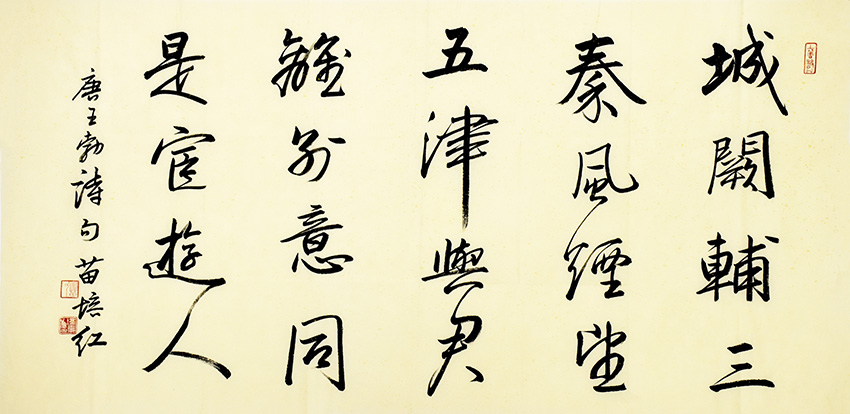 城闕輔三
秦風煙望
五津與君
離別意同
是宦遊人
唐王勃詩句苗培红